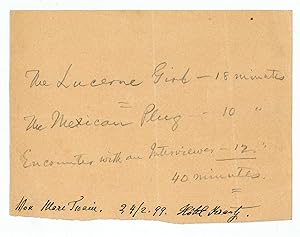 The Lucerne Girl — 18 minutes
=
The Mexican Plug — 10 "
Encounter with an Interviewer — 12 "
40 minutes.
=
Mark Twain. 24/2.99. Hôtel Krantz